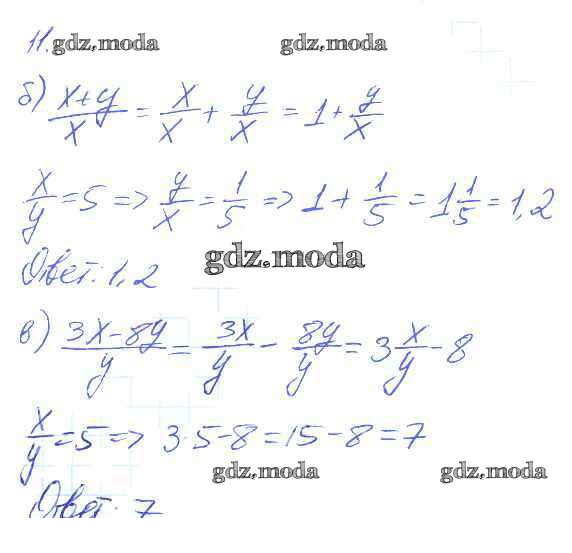 11. gdz.moda gdz.moda
б) (x+y)/x = x/x + y/x = 1 + y/x
x/y = 5 => y/x = 1/5 => 1 + 1/5 = 1 1/5 = 1,2
gdz.moda
Ответ: 1,2
в) (3x-8y)/y = 3x/y - 8y/y = 3 x/y - 8
x/y = 5 => 3·5-8=15-8=7
gdz.moda gdz.moda
Ответ: 7